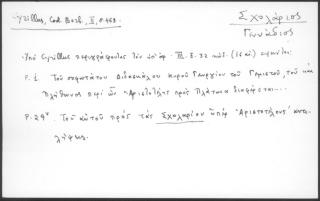 Cyrillus, Cod. Borb., II, p. 468.
Σχολάριος
Γεννάδιος
Ὑπὸ Cyrillus περιγράφονται τὸν ὑπ' ἀρ. III. E. 32 κώδ. (16 αἰ.)
F. 1. Τοῦ σοφωτάτου διδασκάλου κυροῦ Γεωργίου τοῦ Γεμιστοῦ, τοῦ καὶ
Πλήθωνος περὶ ὧν Ἀριστοτέλης πρὸς Πλάτωνα διαφέρεται...
F. 29ᵛ. Τοῦ αὐτοῦ πρὸς τὰς Σχολαρίου ὑπὲρ Ἀριστοτέλους ἀντι-
λήψεις.